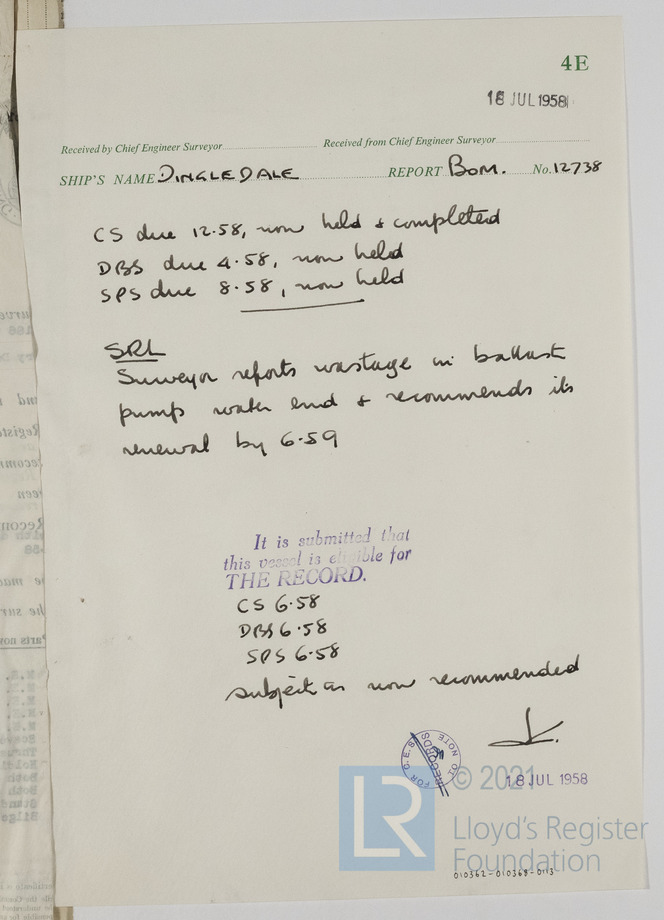 4E
18 JUL 1958
Received by Chief Engineer Surveyor
Received from Chief Engineer Surveyor
SHIP'S NAME DINGLEDALE REPORT BOM. No. 12738
CS due 12.58, now held & completed
DBS due 4.58, now held
SPS due 8.58, now held
SRL
Surveyor reports wastage in ballast
pump water end & recommends its
renewal by 6.59
It is submitted that
this vessel is eligible for
THE RECORD.
CS 6.58
DBS 6.58
SPS 6.58
subject as now recommended
RECORDS
NOTE
TO
FOR C.E.S.
18 JUL 1958
© 2021
LR
Lloyd's Register
Foundation
010362-010368-0113